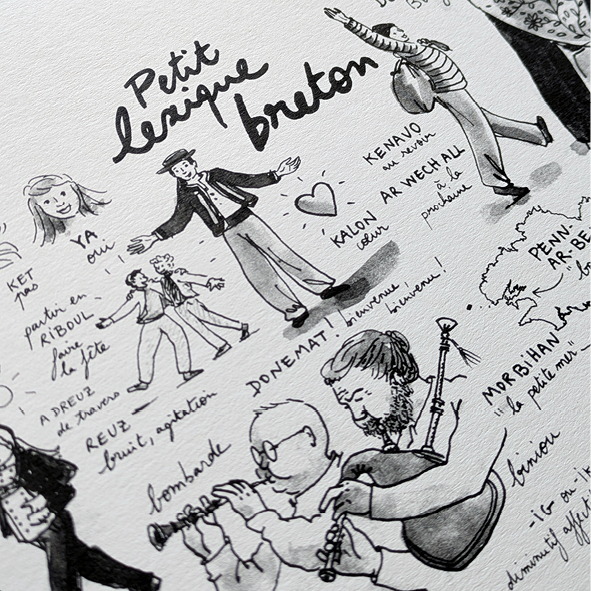 Petit
lexique
breton
KENAVO
au revoir
AR WECH ALL
à la
prochaine
KALON
cœur
YA
oui
KET
pas
partir en
RIBOUL
faire
la fête
PENN-
AR-BE
DONEMAT !
bienvenue !
bienvenue !
A DREUZ
de travers
REUZ
bruit, agitation
MORBIHAN
"la petite mer"
bombarde
biniou
-IG ou -IK
diminutif affect